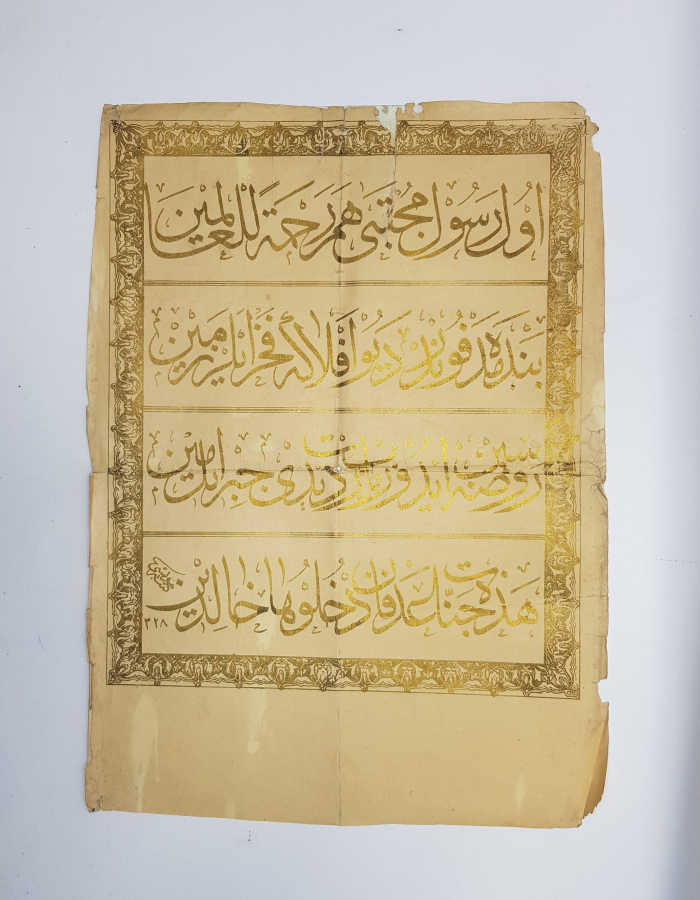 اول رسول مجتبى هم رحمة للعالمين
بنده مدفوندر ديو افلاكه فخر ايلر زمين
روضه سين ايدوب زيارت ديدى جبرايل امين
هذه جنات عدن فادخلوها خالدين
٣٢٨